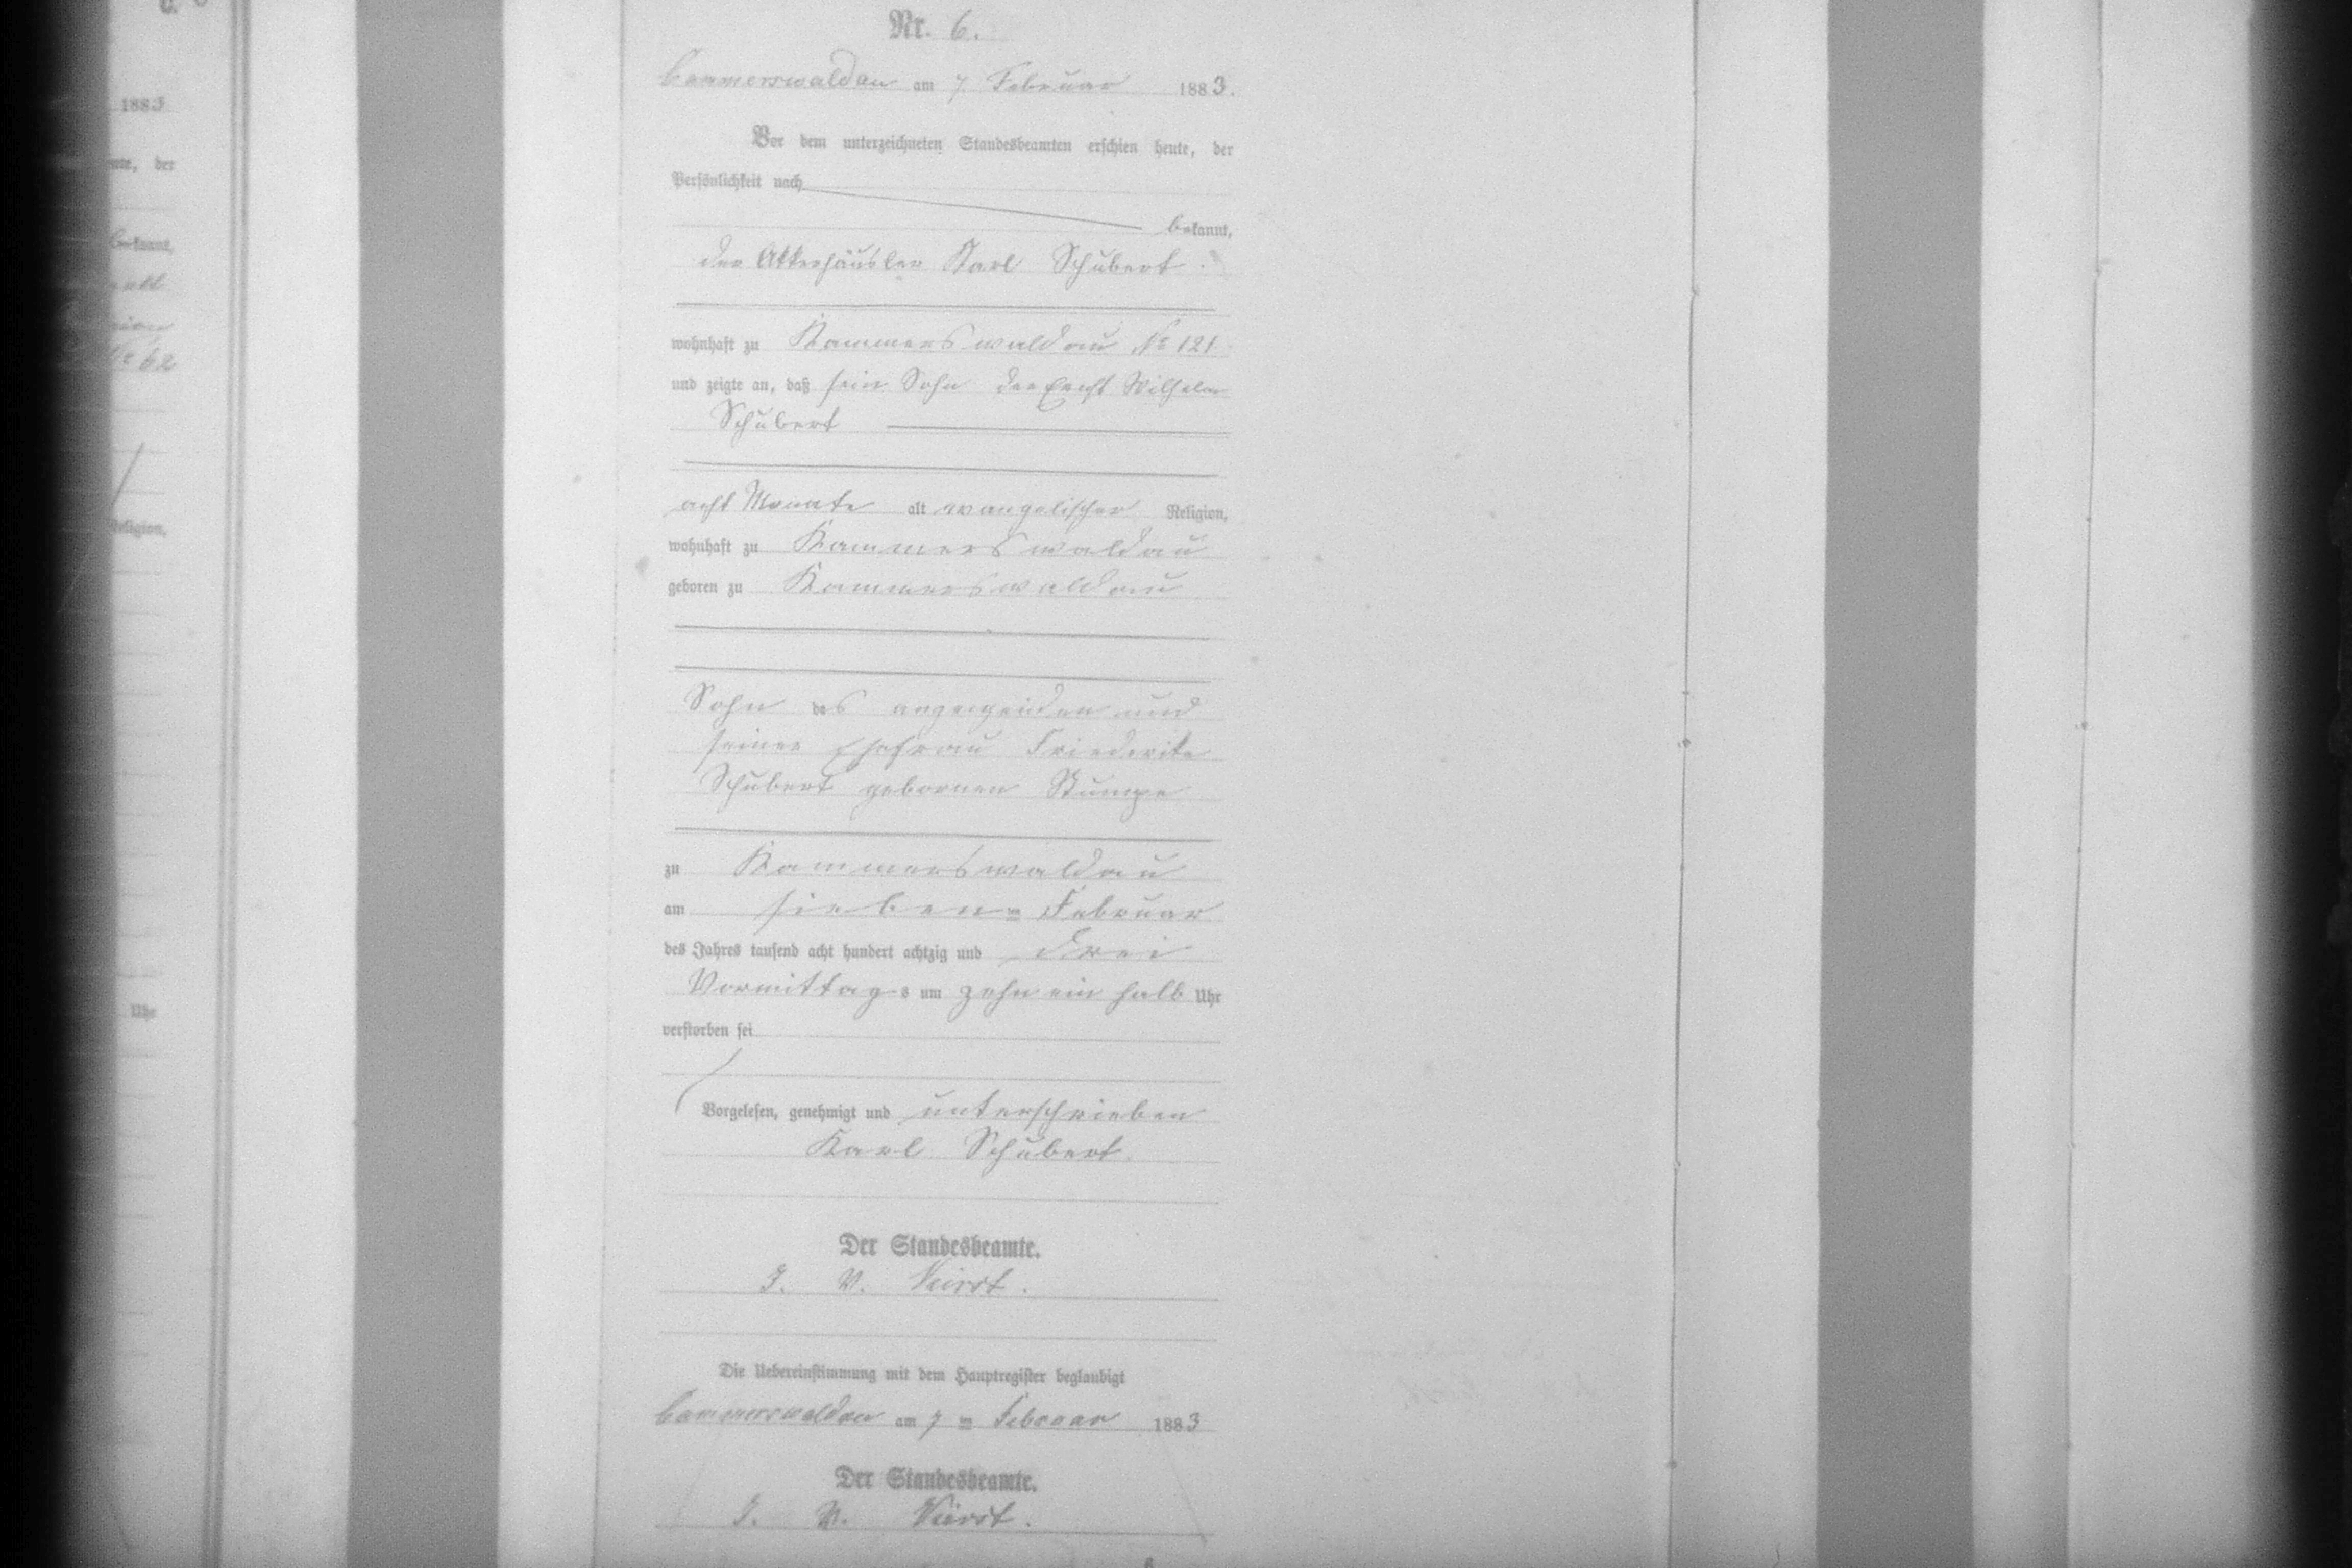 Nr. 6.
Cammerswaldau am 7 Februar 1883.
Vor dem unterzeichneten Standesbeamten erschien heute, der
Persönlichkeit nach
bekannt,
der Akkerhäusler Karl Schubert.
wohnhaft zu Kammerswaldau No 121
und zeigte an, daß sein Sohn der Ernst Wilhelm
Schubert
acht Monate alt evangelischer Religion,
wohnhaft zu Kammerswaldau
geboren zu Kammerswaldau
Sohn des und
seiner Ehefrau Friederike
Schubert gebornen Stumpe
zu Kammerswaldau
am sieben ten Februar
des Jahres tausend acht hundert achtzig und drei
Vormittags um zehn ein halb Uhr
verstorben sei
Vorgelesen, genehmigt und unterschrieben
Karl Schubert.
Der Standesbeamte.
J. V.
Die Uebereinstimmung mit dem Hauptregister beglaubigt
Cammerswaldau am 7 ten Februar 1883
Der Standesbeamte.
J. V.
1883
der
bekannt,
No 62
Religion,
Uhr